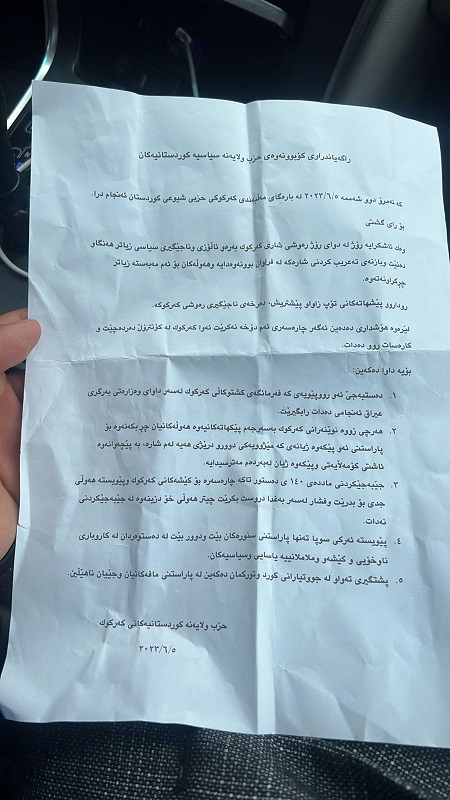 راگەیاندراوی کۆبوونەوەی حزب ولایەنە سیاسیە کوردستانیەکان
کە ئەمرۆ دوو شەممە ٢٠٢٣/٦/٥ لە بارەگای مەڵبەندی کەرکوکی حزبی شیوعی کوردستان ئەنجام درا.
بۆ رای گشتی
وەك ئاشکرایە رۆژ لە دوای رۆژ رەوشی شاری کەرکوك بەرەو ئاڵۆزی وناجێگیری سیاسی زیاتر هەنگاو
دەنێت وبازنەی تەعریب کردنی شارەکە لە فراوان بوونەوەدایە وهەوڵەکان بۆ ئەم مەبەستە زیاتر
چڕکراونەتەوە.
روداوو پێشهاتەکانی تۆپ زاواو پێشتریش، دەرخەی ناجێگیری رەوشی کەرکوکە.
لێرەوە هۆشداری دەدەین ئەگەر چارەسەری ئەم دۆخە نەکرێت ئەوا کەرکوك لە کۆنترۆڵ دەردەچێت و
کارەسات روو دەدات.
بۆیە داوا دەکەین:
١. دەستبەجێ ئەو رووپێویەی کە فەرمانگەی کشتوکاڵی کەرکوك لەسەر داوای وەزارەتی بەرگری
عیراق ئەنجامی دەدات رابگیرێت.
٢. هەرچی زووە نوێنەرانی کەرکوك بەسەرجەم پێکهاتەکانیەوە هەوڵەکانیان چڕ بکەنەوە بۆ
پاراستنی ئەو پێکەوە ژیانەی کە مێژوویەکی دوورو درێژی هەیە لەم شارە، بە پێچەوانەوە
ئاشتی کۆمەلایەتی وپێکەوە ژیان لەبەردەم مەترسیدایە.
٣. جێبەجێکردنی ماددەی ١٤٠ ی دەستور تاکە چارەسەرە بۆ کێشەکانی کەرکوك وپێویستە هەوڵی
جدی بۆ بدرێت وفشار لەسەر بەغدا دروست بکرێت چیتر هەوڵی خۆ دزینەوە لە جێبەجێکردنی
نەدات.
٤. پێویستە ئەرکی سوپا تەنها پاراستنی سنورەکان بێت ودوور بێت لە دەستوەردان لە کاروباری
ناوخۆیی و کێشەو وململانییە یاسایی وسیاسیەکان.
٥. پشتگیری تەواو لە جووتیارانی کورد وتورکمان دەکەین لە پاراستنی مافەکانیان وجێیان ناهێڵین.
حزب ولایەنە کوردستانیەکانی کەرکوك
٢٠٢٣/٦/٥